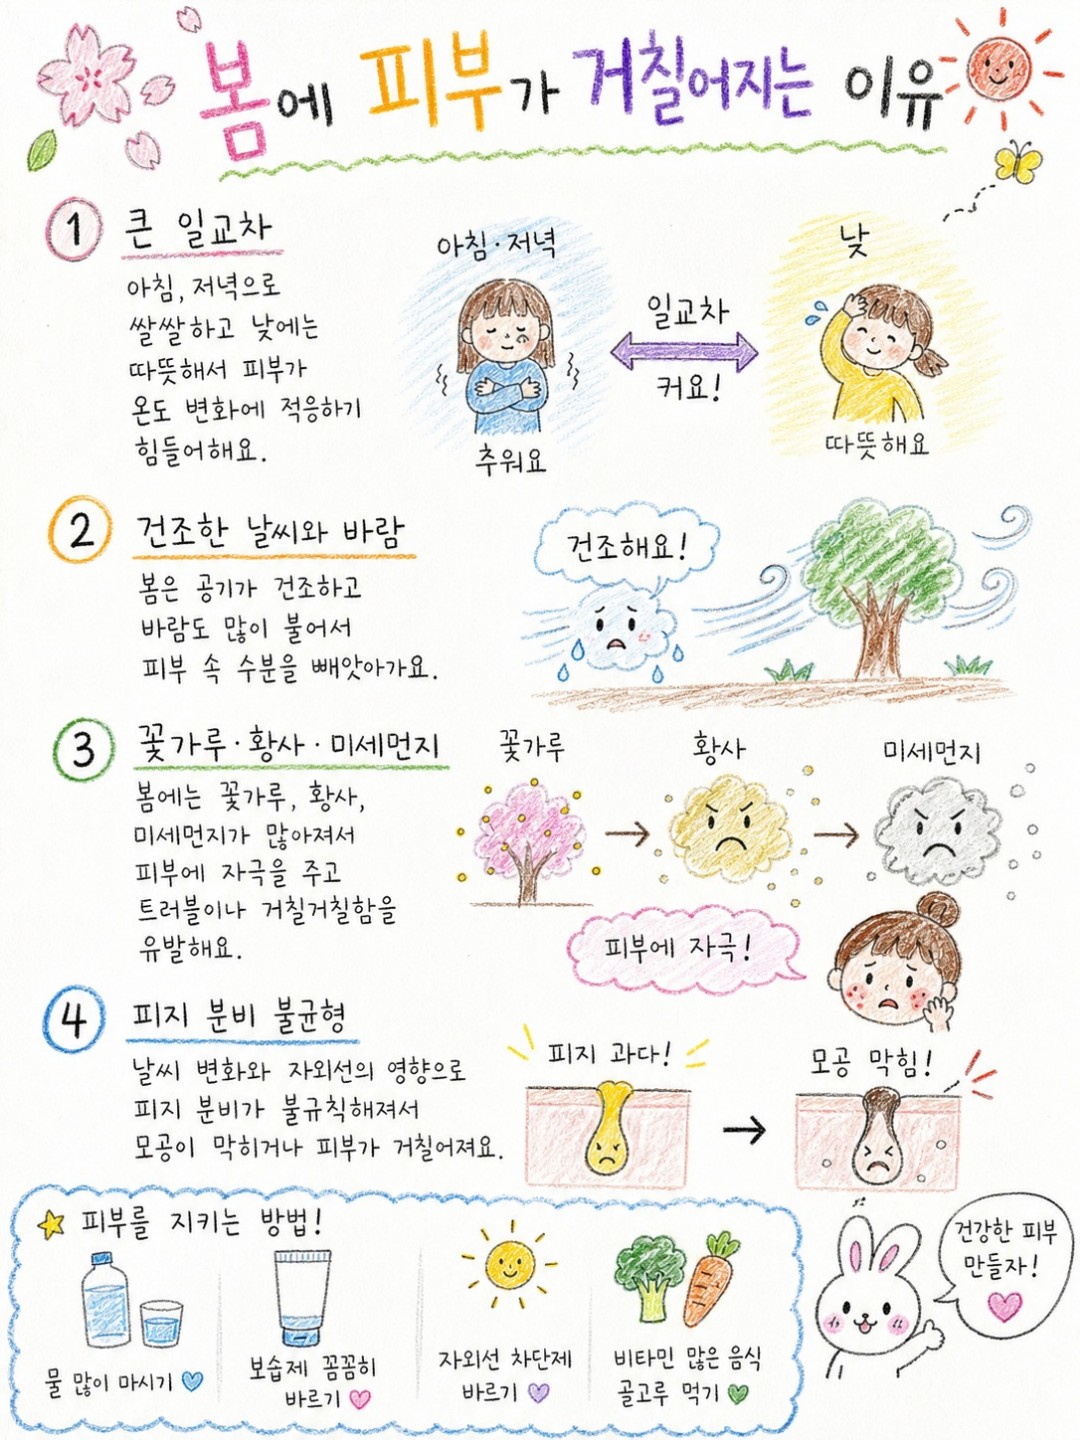 봄에 피부가 거칠어지는 이유
1 큰 일교차
아침, 저녁으로
쌀쌀하고 낮에는
따뜻해서 피부가
온도 변화에 적응하기
힘들어해요.
아침·저녁
추워요
일교차
커요!
낮
따뜻해요
2 건조한 날씨와 바람
봄은 공기가 건조하고
바람도 많이 불어서
피부 속 수분을 빼앗아가요.
건조해요!
3 꽃가루·황사·미세먼지
봄에는 꽃가루, 황사,
미세먼지가 많아져서
피부에 자극을 주고
트러블이나 거칠거칠함을
유발해요.
꽃가루
황사
미세먼지
피부에 자극!
4 피지 분비 불균형
날씨 변화와 자외선의 영향으로
피지 분비가 불규칙해져서
모공이 막히거나 피부가 거칠어져요.
피지 과다!
모공 막힘!
피부를 지키는 방법!
물 많이 마시기
보습제 꼼꼼히
바르기
자외선 차단제
바르기
비타민 많은 음식
골고루 먹기
건강한 피부
만들자!